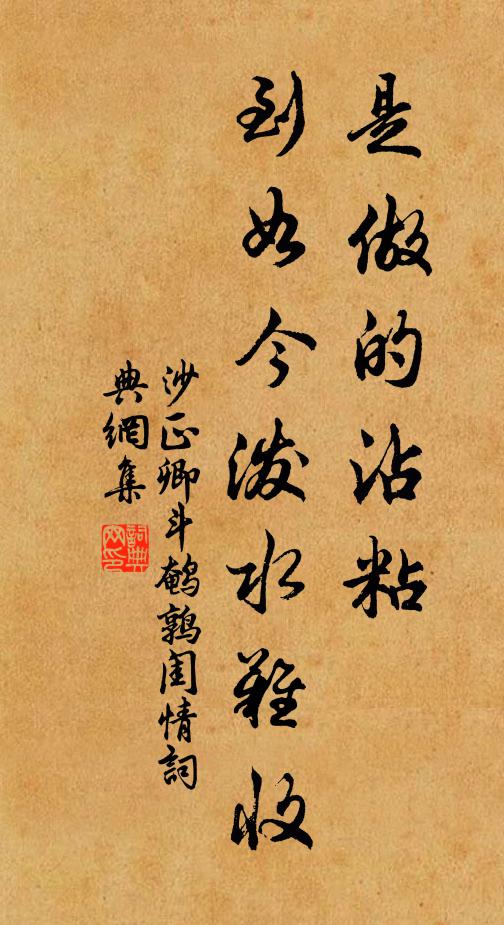 是做的沾粘
到如今泼水難收
沙正卿斗鹌鹑閨情詞
典網集
詞典
网印